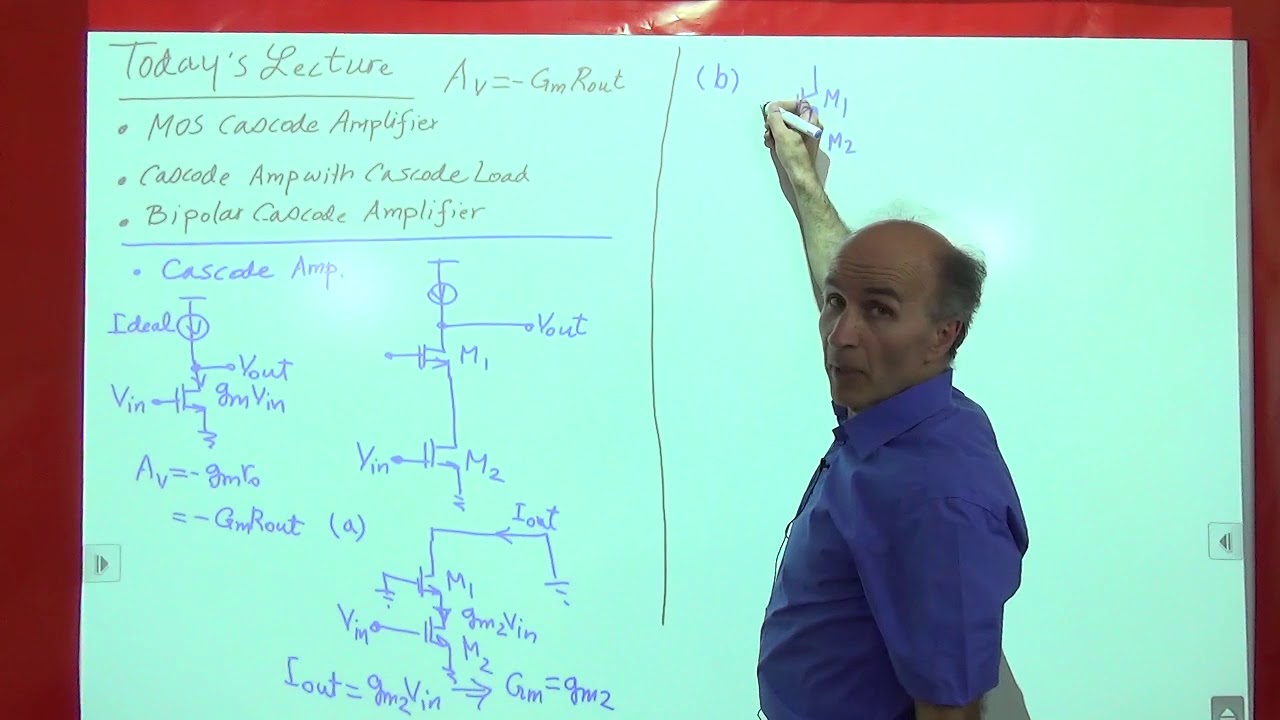 Today's Lecture
Av = - GmRout
• MOS Cascode Amplifier
• Cascode Amp with Cascode Load
• Bipolar Cascode Amplifier
• Cascode Amp.
Ideal
Vout
Vin
gmVin
Av = - gmro
= - GmRout
Vout
M1
Vin
M2
(a)
Iout
M1
gm2Vin
Vin
M2
Iout = gm2Vin ⇒ Gm = gm2
(b)
M1
M2